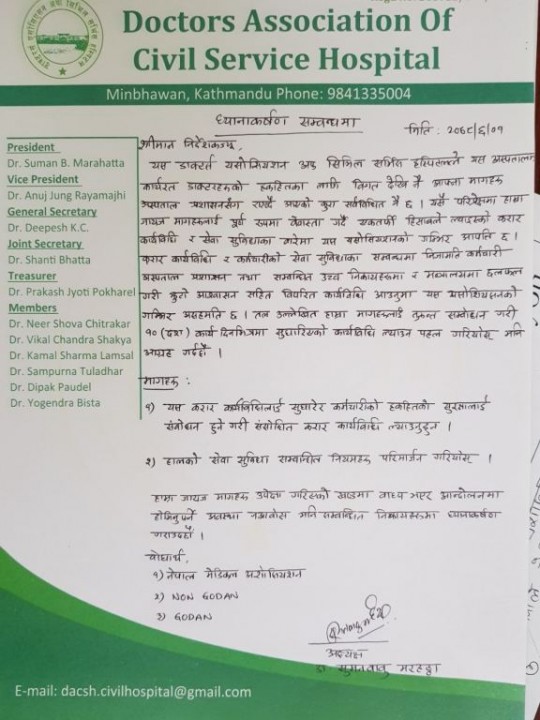 Doctors Association Of
Civil Service Hospital
Minbhawan, Kathmandu Phone: 9841335004
ध्यानाकर्षण सम्बन्धमा
मिति : २०७८/६/०१
President
Dr. Suman B. Marahatta
Vice President
Dr. Anuj Jung Rayamajhi
General Secretary
Dr. Deepesh K.C.
Joint Secretary
Dr. Shanti Bhatta
Treasurer
Dr. Prakash Jyoti Pokharel
Members
Dr. Neer Shova Chitrakar
Dr. Vikal Chandra Shakya
Dr. Kamal Sharma Lamsal
Dr. Sampurna Tuladhar
Dr. Dipak Paudel
Dr. Yogendra Bista
श्रीमान निर्देशकज्यू,
यस डाक्टर्स एसोसियशन अफ सिभिल सर्भिस हस्पिटलले यस अस्पतालमा
कार्यरत डाक्टरहरुको हकहितका लागि विगत देखि नै आफ्ना मागहरु
अस्पताल प्रशासनसँग राख्दै आएको कुरा सर्वविदितै छ । यसै परिप्रेक्षमा हाम्रा
जायज मागहरुलाई पूर्ण रुपमा वेवास्ता गर्दै एकतर्फी हिसाबले ल्याइएको करार
कार्यविधि र सेवा सुविधाका बारेमा यस एसोसियसनको गम्भिर आपत्ति छ ।
करार कार्यविधि र कर्मचारीको सेवा सुविधाका सम्बन्धमा निजामति कर्मचारी
अस्पताल प्रशासन तथा सम्बन्धित उच्च निकायहरुमा र मन्त्रालयमा छलफल
गरी झुटो आश्वासन सहित विपरित कार्यविधि आउनुमा यस एसोसियसनको
गम्भिर असहमति छ । तल उल्लेखित हाम्रा मागहरुलाई तुरुन्त सम्बोधन गरी
१० (दश) कार्य दिनभित्रमा सुधारिएको कार्यविधि ल्याउन पहल गरियोस् भनि
आग्रह गर्दछौं ।
मागहरु :
१) यस करार कार्यविधिलाई सुधारेर कर्मचारीको हकहितको सुरक्षालाई
संबोधन हुने गरी संशोधित करार कार्यविधि ल्याउनुहुन ।
२) हालको सेवा सुविधा सम्बन्धित नियमहरु परिमार्जन गरियोस् ।
हाम्रा जायज मागहरु उपेक्षा गरिएको खण्डमा बाध्य भएर आन्दोलनमा
होमिनुपर्ने अवस्था नआवोस भनि सम्बन्धित निकायहरुमा ध्यानाकर्षण
गराउदछौं ।
बोधार्थ,
१) नेपाल मेडिकल एसोसियशन
२) NON GODAN
३) GODAN
अध्यक्ष
डा. सुमन बाबु मरहट्टा
E-mail: dacsh.civilhospital@gmail.com